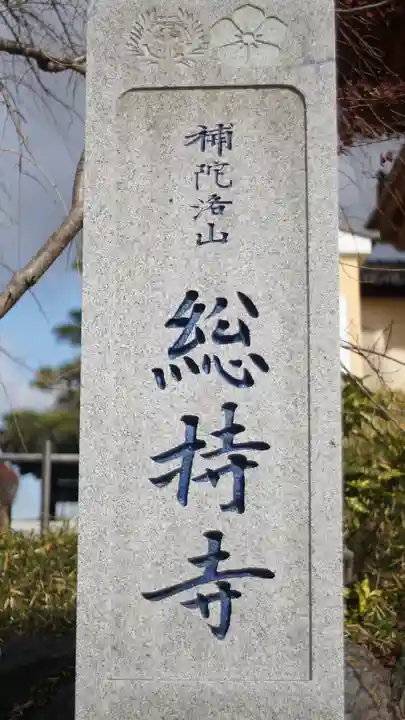 補陀洛山
総持寺